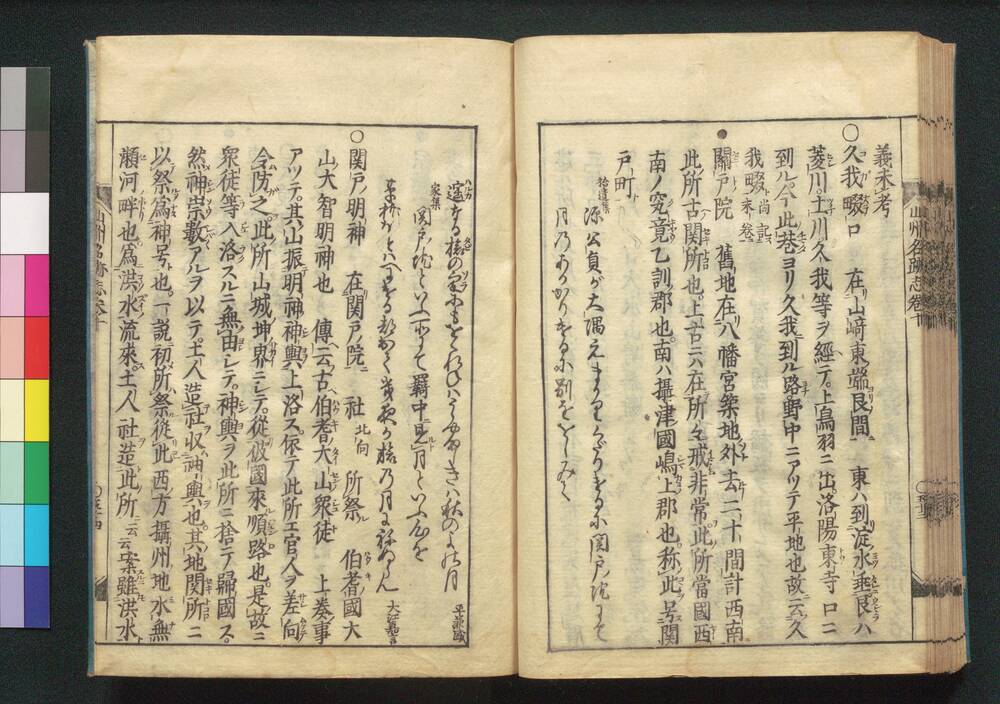 義未考
〇久我畷口 在山﨑東端艮間 東ハ到淀水垂艮ハ
菱川土川久我等ヲ經テ上鳥羽ニ出洛陽東寺口ニ
到ル今此巷ヨリ久我到ル路野中ニアツテ平地也故ニ云久
我畷 尚記末巻
●關戸院 舊地在八幡宮築地外去二十間計西南
此所古關所也上古ニハ在所々戒非常此所當國西
南ノ究竟乙訓郡也南ハ攝津國嶋上郡也称此号関
戸町
拾遺集 源公貞が大隅えまかりくだりける小関戸院にて
月乃あかかりける小別をしみて
山州名跡志巻十
家集 遥なる旅の空小もをくれねはうらやましきハ秋のよの月 平兼盛
関戸院といふ所にて羇中見月といふ心を
草枕
大江嘉言
〇関戸ノ明神 在関戸院 社北向 所祭 伯耆國大
山大智明神也 傳云古伯耆大山衆徒 上奏事
アツテ其山振明神神輿上洛ス依テ此所エ官人ヲ差向
令防之此所山城坤界ニシテ從彼國來順路也是故ニ
衆徒等入洛スルニ無由シテ神輿ヲ此所ニ捨テ歸國ス
然神崇數アルヲ以テ土人造社収神輿也其地関所ニ
以祭爲神号也一説初所祭從此西方攝州地水無
瀬河畔也爲洪水流來土人社造此所云云案雖洪水
山州名跡志巻十